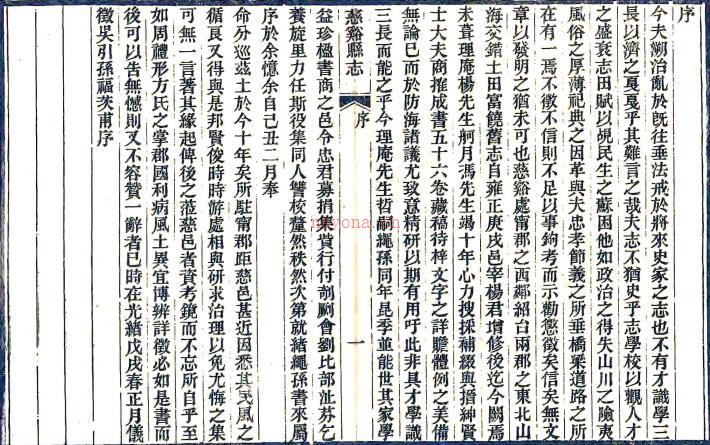 序
今夫溯治亂於旣往垂法戒於將來史家之志也不有才識學三
長以濟之戛戛乎其難言之哉夫志不猶史乎志學校以觀人才
之盛衰志田賦以覘民生之蘇困他如政治之得失山川之險夷
風俗之厚薄祀典之因革與夫忠孝節義之所垂橋梁道路之所
在有一焉不徵不信則不足以事鉤考而示勸懲徵矣信矣無文
章以發明之猶未可也慈谿處甯郡之西鄰紹台兩郡之東北山
海交錯土田富饒舊志自雍正庚戌邑宰楊君增修後迄今闕焉
未葺理庵楊先生舸月馮先生竭十年心力搜採補綴與搢紳賢
士大夫商摧成書五十六卷藏稿待梓文字之詳贍體例之美備
無論已而於防海諸議尤致意精研以期有用吁此非具才學識
三長而能之乎今理庵先生哲嗣繩孫同年昆季並能世其家學
慈谿縣志
序
一
益珍楹書商之邑令忠君募捐集貲行付剞劂會劉比部沚芬乞
養旋里力任斯役集同人讐校釐然秩然次第就緒繩孫書來屬
序於余憶余自己丑二月奉
命分巡茲土於今十年矣所駐甯郡距慈邑甚近因悉其民風之
循良又得與是邦賢俊時時游處相與研求治理以免尤悔之集
可無一言著其緣起俾後之蒞慈邑者資考鏡而不忘所自乎至
如周禮形方氏之掌郡國利病風土異宜博辨詳徵必如是書而
後可以告無憾則又不容贊一辭者已時在光緒戊戌春正月儀
徵吳引孫福茨甫序